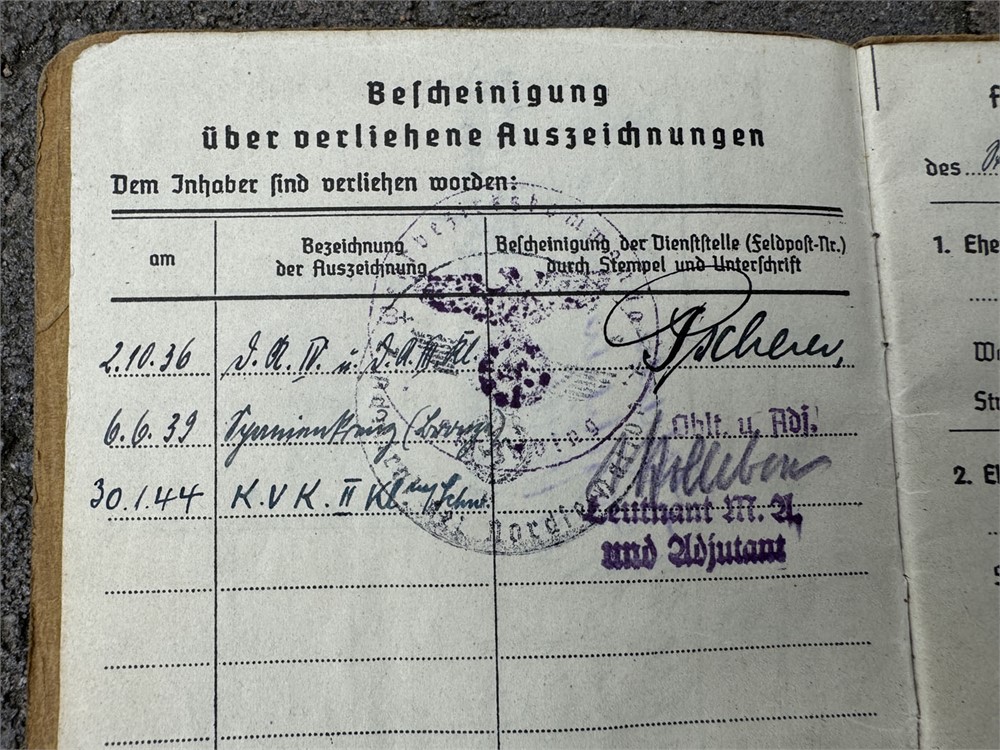 Bescheinigung
über verliehene Auszeichnungen
Dem Inhaber sind verliehen worden:
am
Bezeichnung
der Auszeichnung
Bescheinigung der Dienststelle (Feldpost-Nr.)
durch Stempel und Unterschrift
2.10.36 D.A. IV. u. D.A. III. Kl.
6.6.39 Spanienkreuz (Bronze)
Oblt. u. Adj.
30.1.44 K.V.K. II Kl. m/Schw.
Leutnant M.A.
und Adjutant
des
1. Ehe
2. E